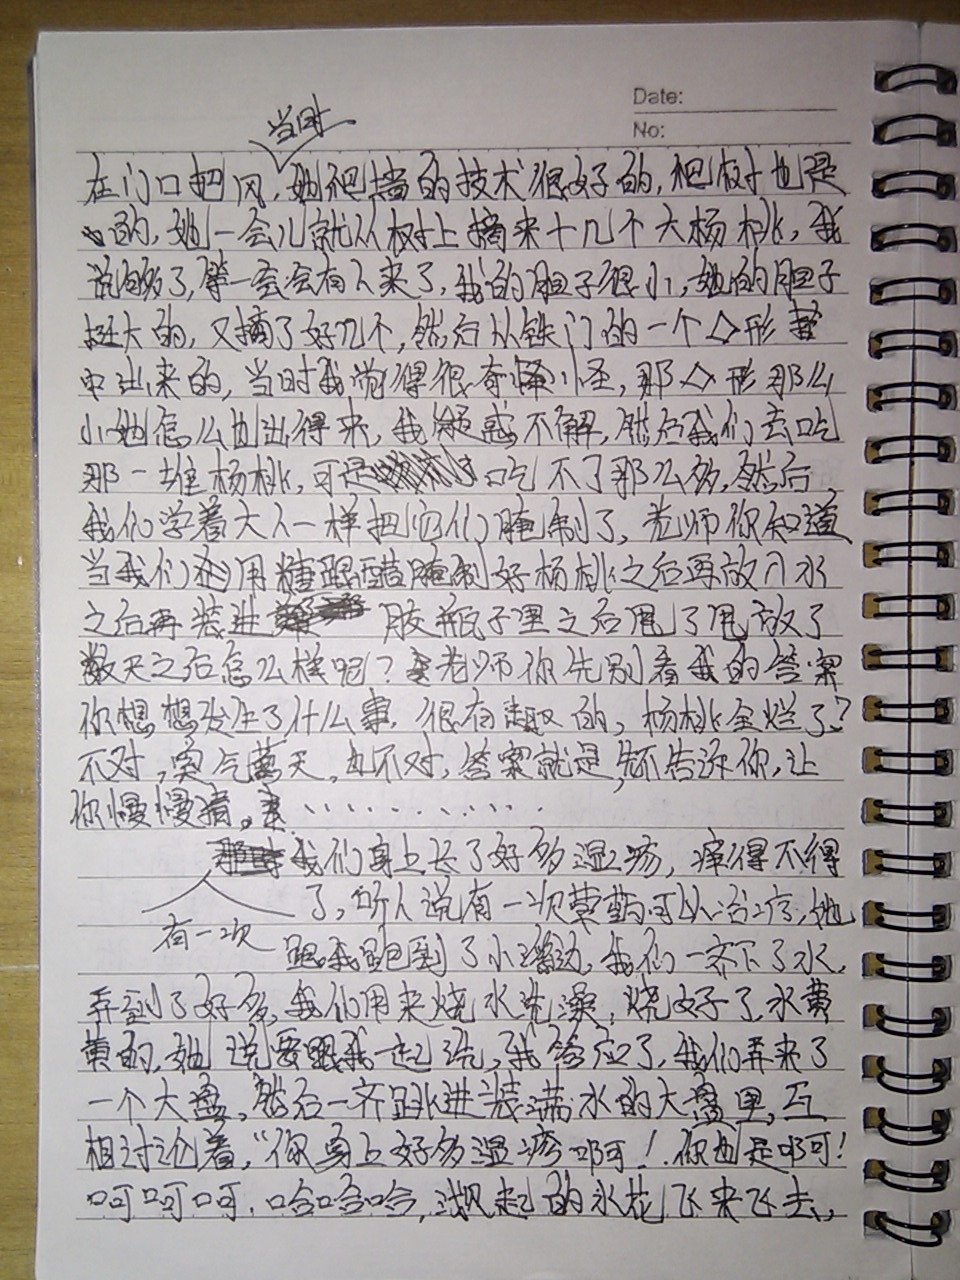 Date:
No:
当时
在门口把风，她爬墙的技术很好的，爬树也是
的，她一会儿就从树上摘来十几个大杨桃，我
说够了，等一会会有人来了，我的胆子很小，她的胆子
挺大的，又摘了好几个，然后从铁门的一个△形
中出来的，当时我觉得很奇怪，那△形那么
小她怎么也出得来，我疑惑不解，然后我们去吃
那一堆杨桃，可是吃不了那么多，然后
我们学着大人一样把它们腌制了，老师你知道
当我们用糖跟醋腌制好杨桃之后再放入水
之后再装进胶瓶子里之后甩了甩放了
数天之后怎么样呢？老师你先别看我的答案
你想想发生了什么事，很有趣的，杨桃全烂了？
不对，臭气薰天，也不对，答案就是，先不告诉你，让
你慢慢猜。
我们身上长了好多湿疹，痒得不得
有一次
了，听人说有一次黄药可以治疗，她
跟我跑到了小溪边，我们一齐下了水，
弄到了好多，我们用来烧水洗澡，烧好了，水黄
黄的，她说要跟我一起洗，我答应了，我们弄来了
一个大盆，然后一齐跳进装满水的大盆里，互
相讨论着，“你身上好多湿疹啊！你也是啊！
呵呵呵，哈哈哈，溅起的水花飞来飞去，